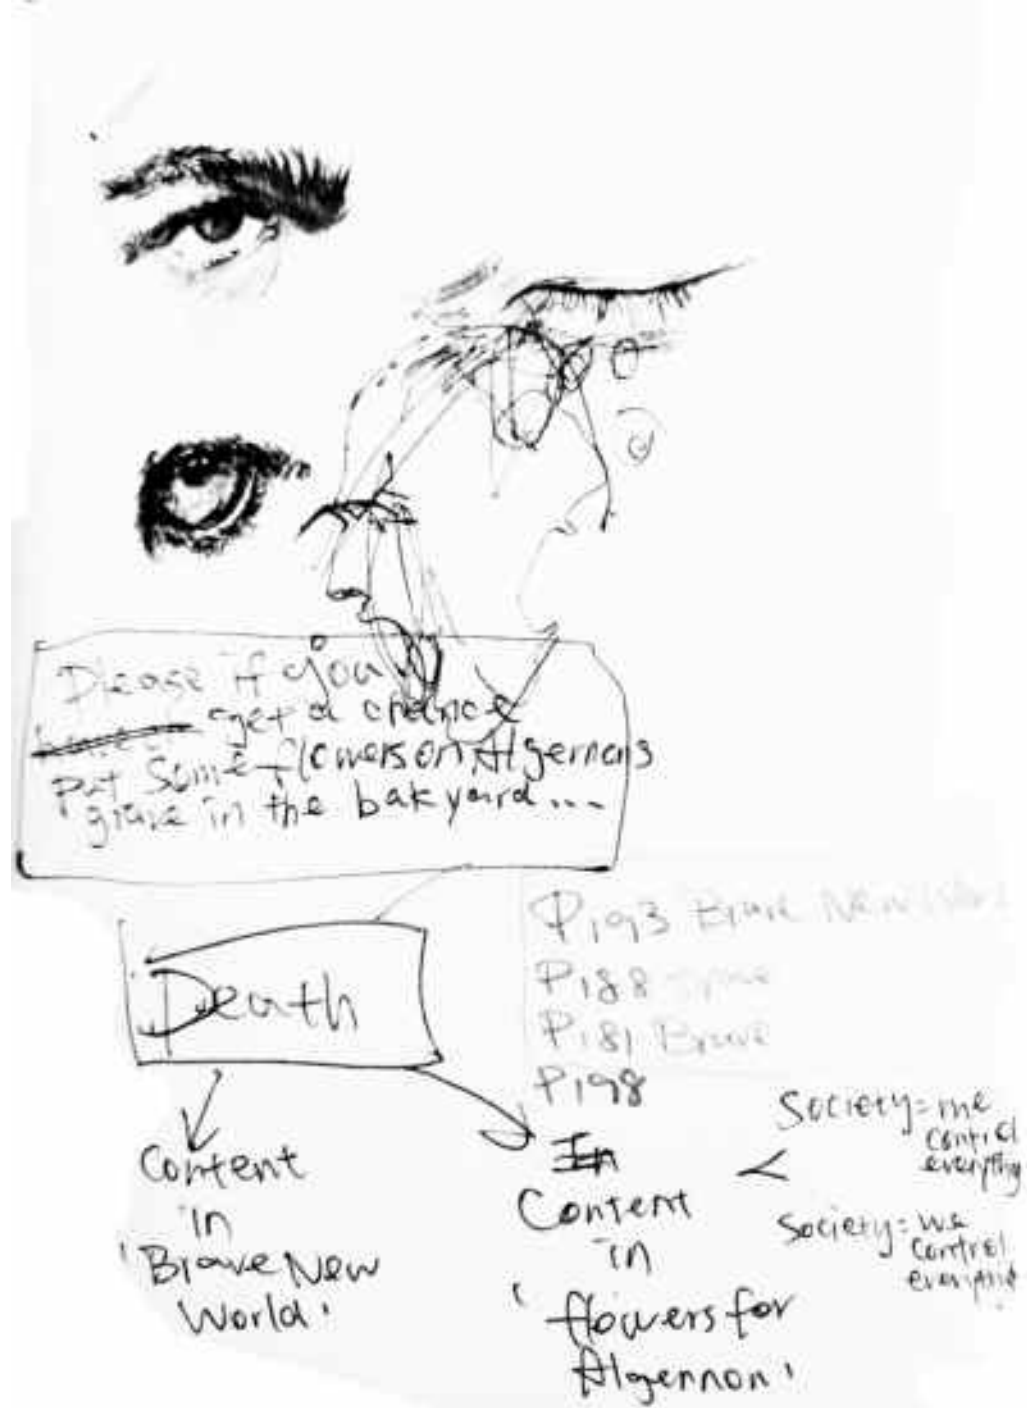 Please if you
get a chance
put some flowers on Algernons
grave in the bakyard...
Death
P193 Brave New World
P188
P181 Brave
P198
Content
in
'Brave New
World'
In
Content
in
'flowers for
Algernnon'
<
Society = me
control
everything
Society = we
control
everything